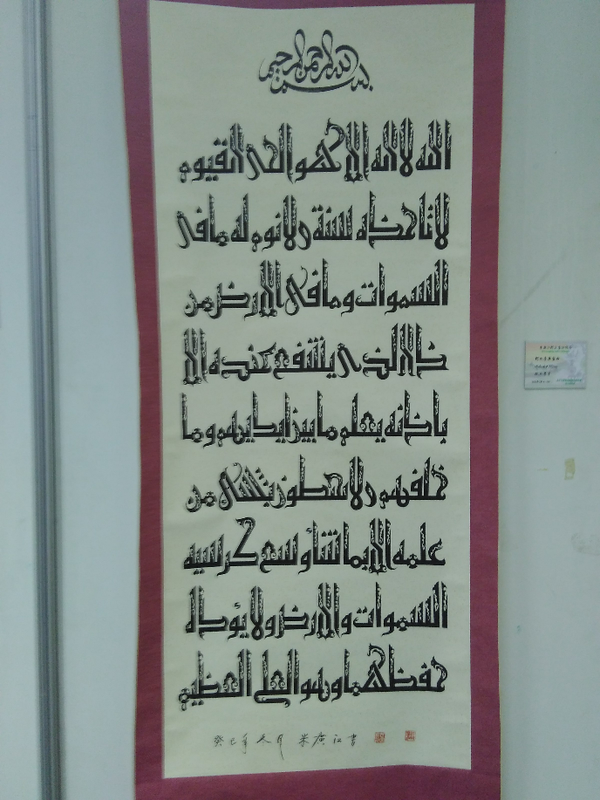 بسم الله الرحمن الرحيم
الله لا اله الا هو الحي القيوم
لا تاخذه سنة ولا نوم له ما في
السموات وما في الارض من
ذا الذي يشفع عنده الا
باذنه يعلم ما بين ايديهم وما
خلفهم ولا يحيطون بشئ من
علمه الا بما شاء وسع كرسيه
السموات والارض ولا يؤده
حفظهما وهو العلي العظيم
癸巳年 米广江书